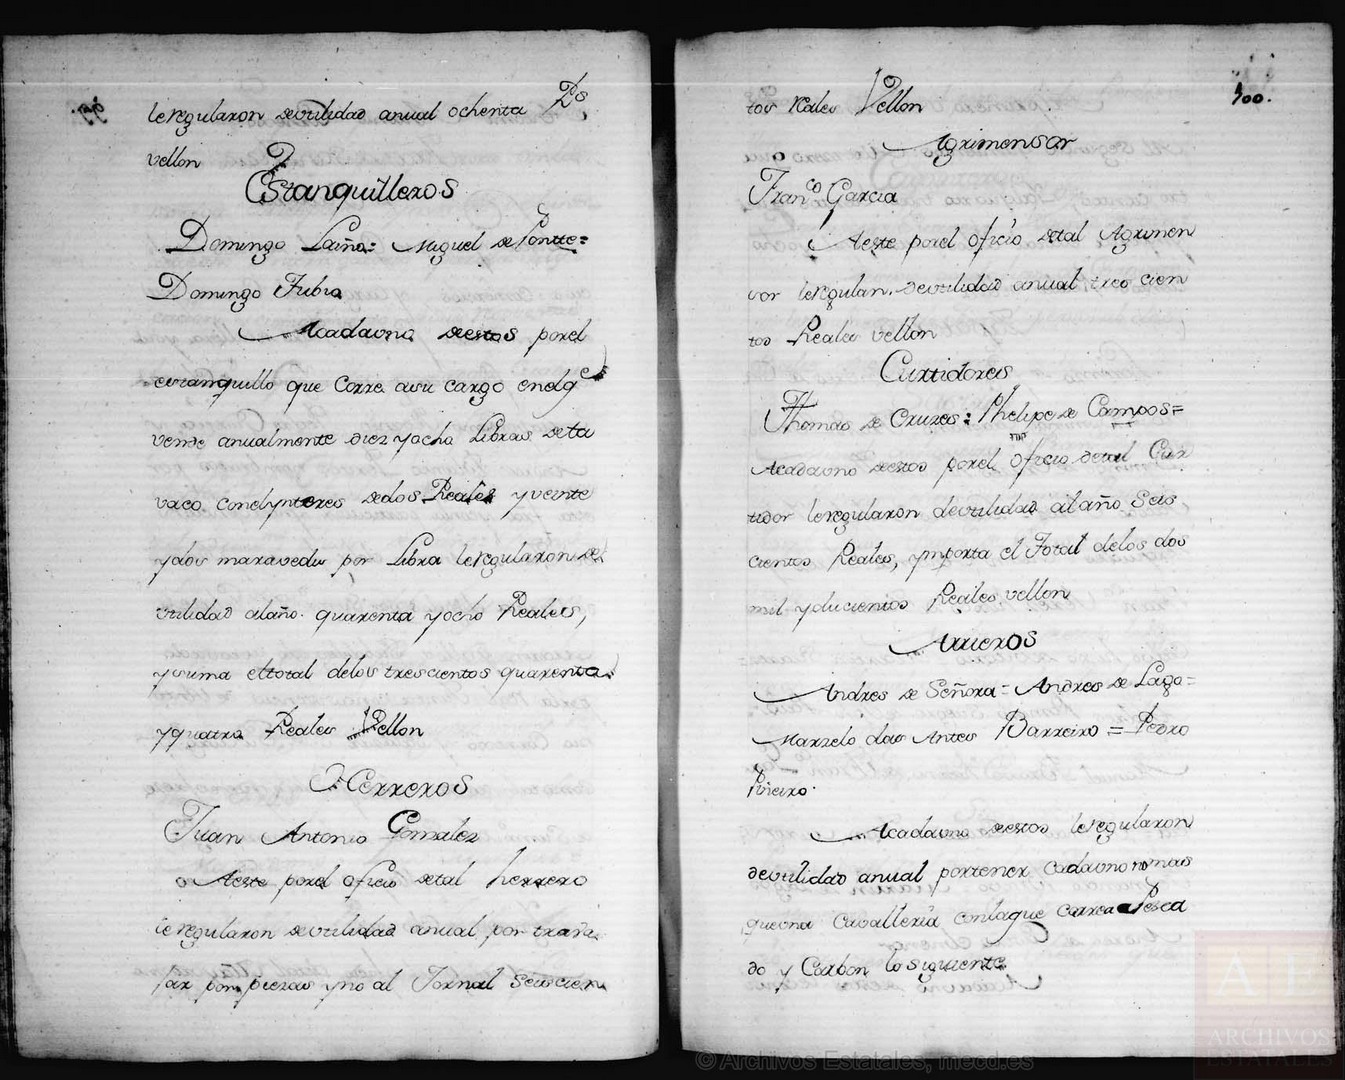 le regularon de utilidad anual ochenta Rs,
vellon
Estanquilleros
Domingo Laiño = Miguel de Pontte =
Domingo Fubio
A cada uno de estos por el
estanquillo que corre a su cargo en el q.e
vende anualmente diez y ocho Libras de ta
vaco con el ynteres de dos Reales y veinte
y dos maravedis por Libra le regularon de
utilidad al año quarenta y ocho Reales,
y suma el total de los tres cientos quarenta
y quatro Reales Vellon
Herreros
Juan Antonio Gonzalez
A este por el oficio de tal herrero
le regularon de utilidad anual por trava
jar por piezas y no al Jornal Seiscien
400.
tos Reales Vellon
Agrimensor
Fran.co Garcia
A este por el oficio de tal Agrimen
sor le regulan. de utilidad anual tres cien
tos Reales vellon
Curtidores
Thomas de Cruzes = Phelipe de Campos =
A cada uno de estos por el oficio de tal Cur
tidor le regularon de utilidad al año Seis
cientos Reales, y ymporta el Total de los dos
mil y ducientos Reales vellon
Arrieros
Andres de Señora = Andres de Lago =
Marzelo das Antes Barreiro = Pedro
Piñeiro.
A cada uno de estos le regularon
de utilidad anual por tener cada uno no mas
que una Cavalleria con la que Carrea Pesca
do y Carbon lo siguiente
© Archivos Estatales, mecd.es
A E
ARCHIVOS
ESTATALES